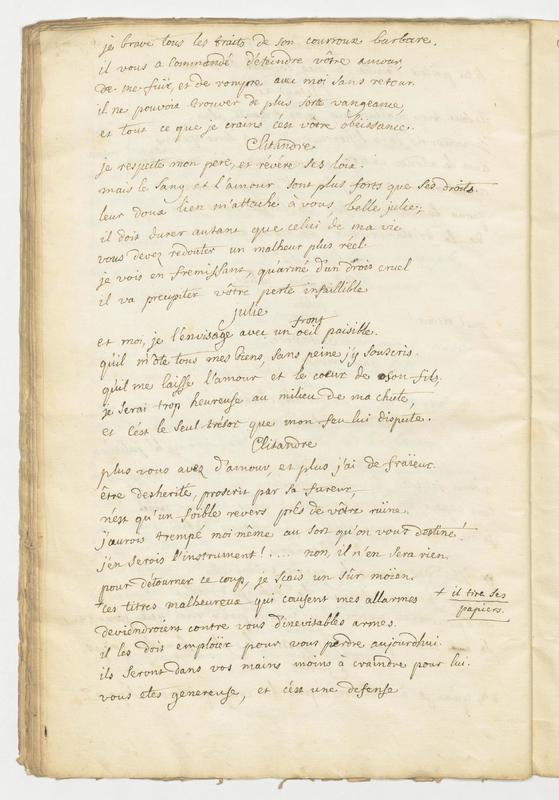 je brave tous les traits de son courroux barbare.
il vous a commandé d'éteindre vôtre amour,
de me fuïr, et de rompre avec moi sans retour.
il ne pouvoit trouver de plus forte vangeance,
et tout ce que je crains c'est vôtre obeïssance.
Clitandre
je respecte mon pere, et révére ses loix.
mais le sang et l'amour sont plus forts que ses droits.
leur doux lien m'attache à vous, belle julie;
il doit durer autant que celui de ma vie
vous devez redouter un malheur plus réel.
je vois en fremissant, qu'armé d'un droit cruel
il va precipiter vôtre perte infaillible
julie
front
et moi, je l'envisage avec un oeil paisible.
qu'il m'ote tous mes biens, sans peine j'y souscris.
qu'il me laisse l'amour et le coeur de son fils,
je serai trop heureuse au milieu de ma chute,
et c'est le seul trésor que mon feu lui dispute.
Clitandre
plus vous avez d'amour, et plus j'ai de fraïeur.
être desherité, proscrit par sa fureur,
n'est qu'un foible revers près de vôtre ruine.
j'aurois trempé moi même au sort qu'on vous destine!
j'en serois l'instrument! .... non, il n'en sera rien.
pour détourner ce coup, je scais un sûr moïen.
+ ces titres malheureux qui causent mes allarmes + il tire ses
papiers.
deviendroient contre vous d'inevitables armes.
il les doit emploïer pour vous perdre aujourdhui.
ils seront dans vos mains moins à craindre pour lui.
vous etes genereuse, et c'est une defense